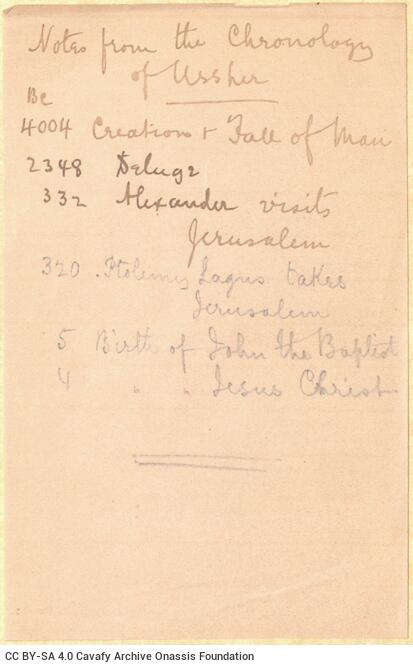 Notes from the Chronology
of Ussher
BC
4004 Creation & Fall of Man
2348 Deluge
332 Alexander visits
Jerusalem
320 . Ptolemy Lagus takes
Jerusalem
5 Birth of John the Baptist
4 " " Jesus Christ
CC BY-SA 4.0 Cavafy Archive Onassis Foundation